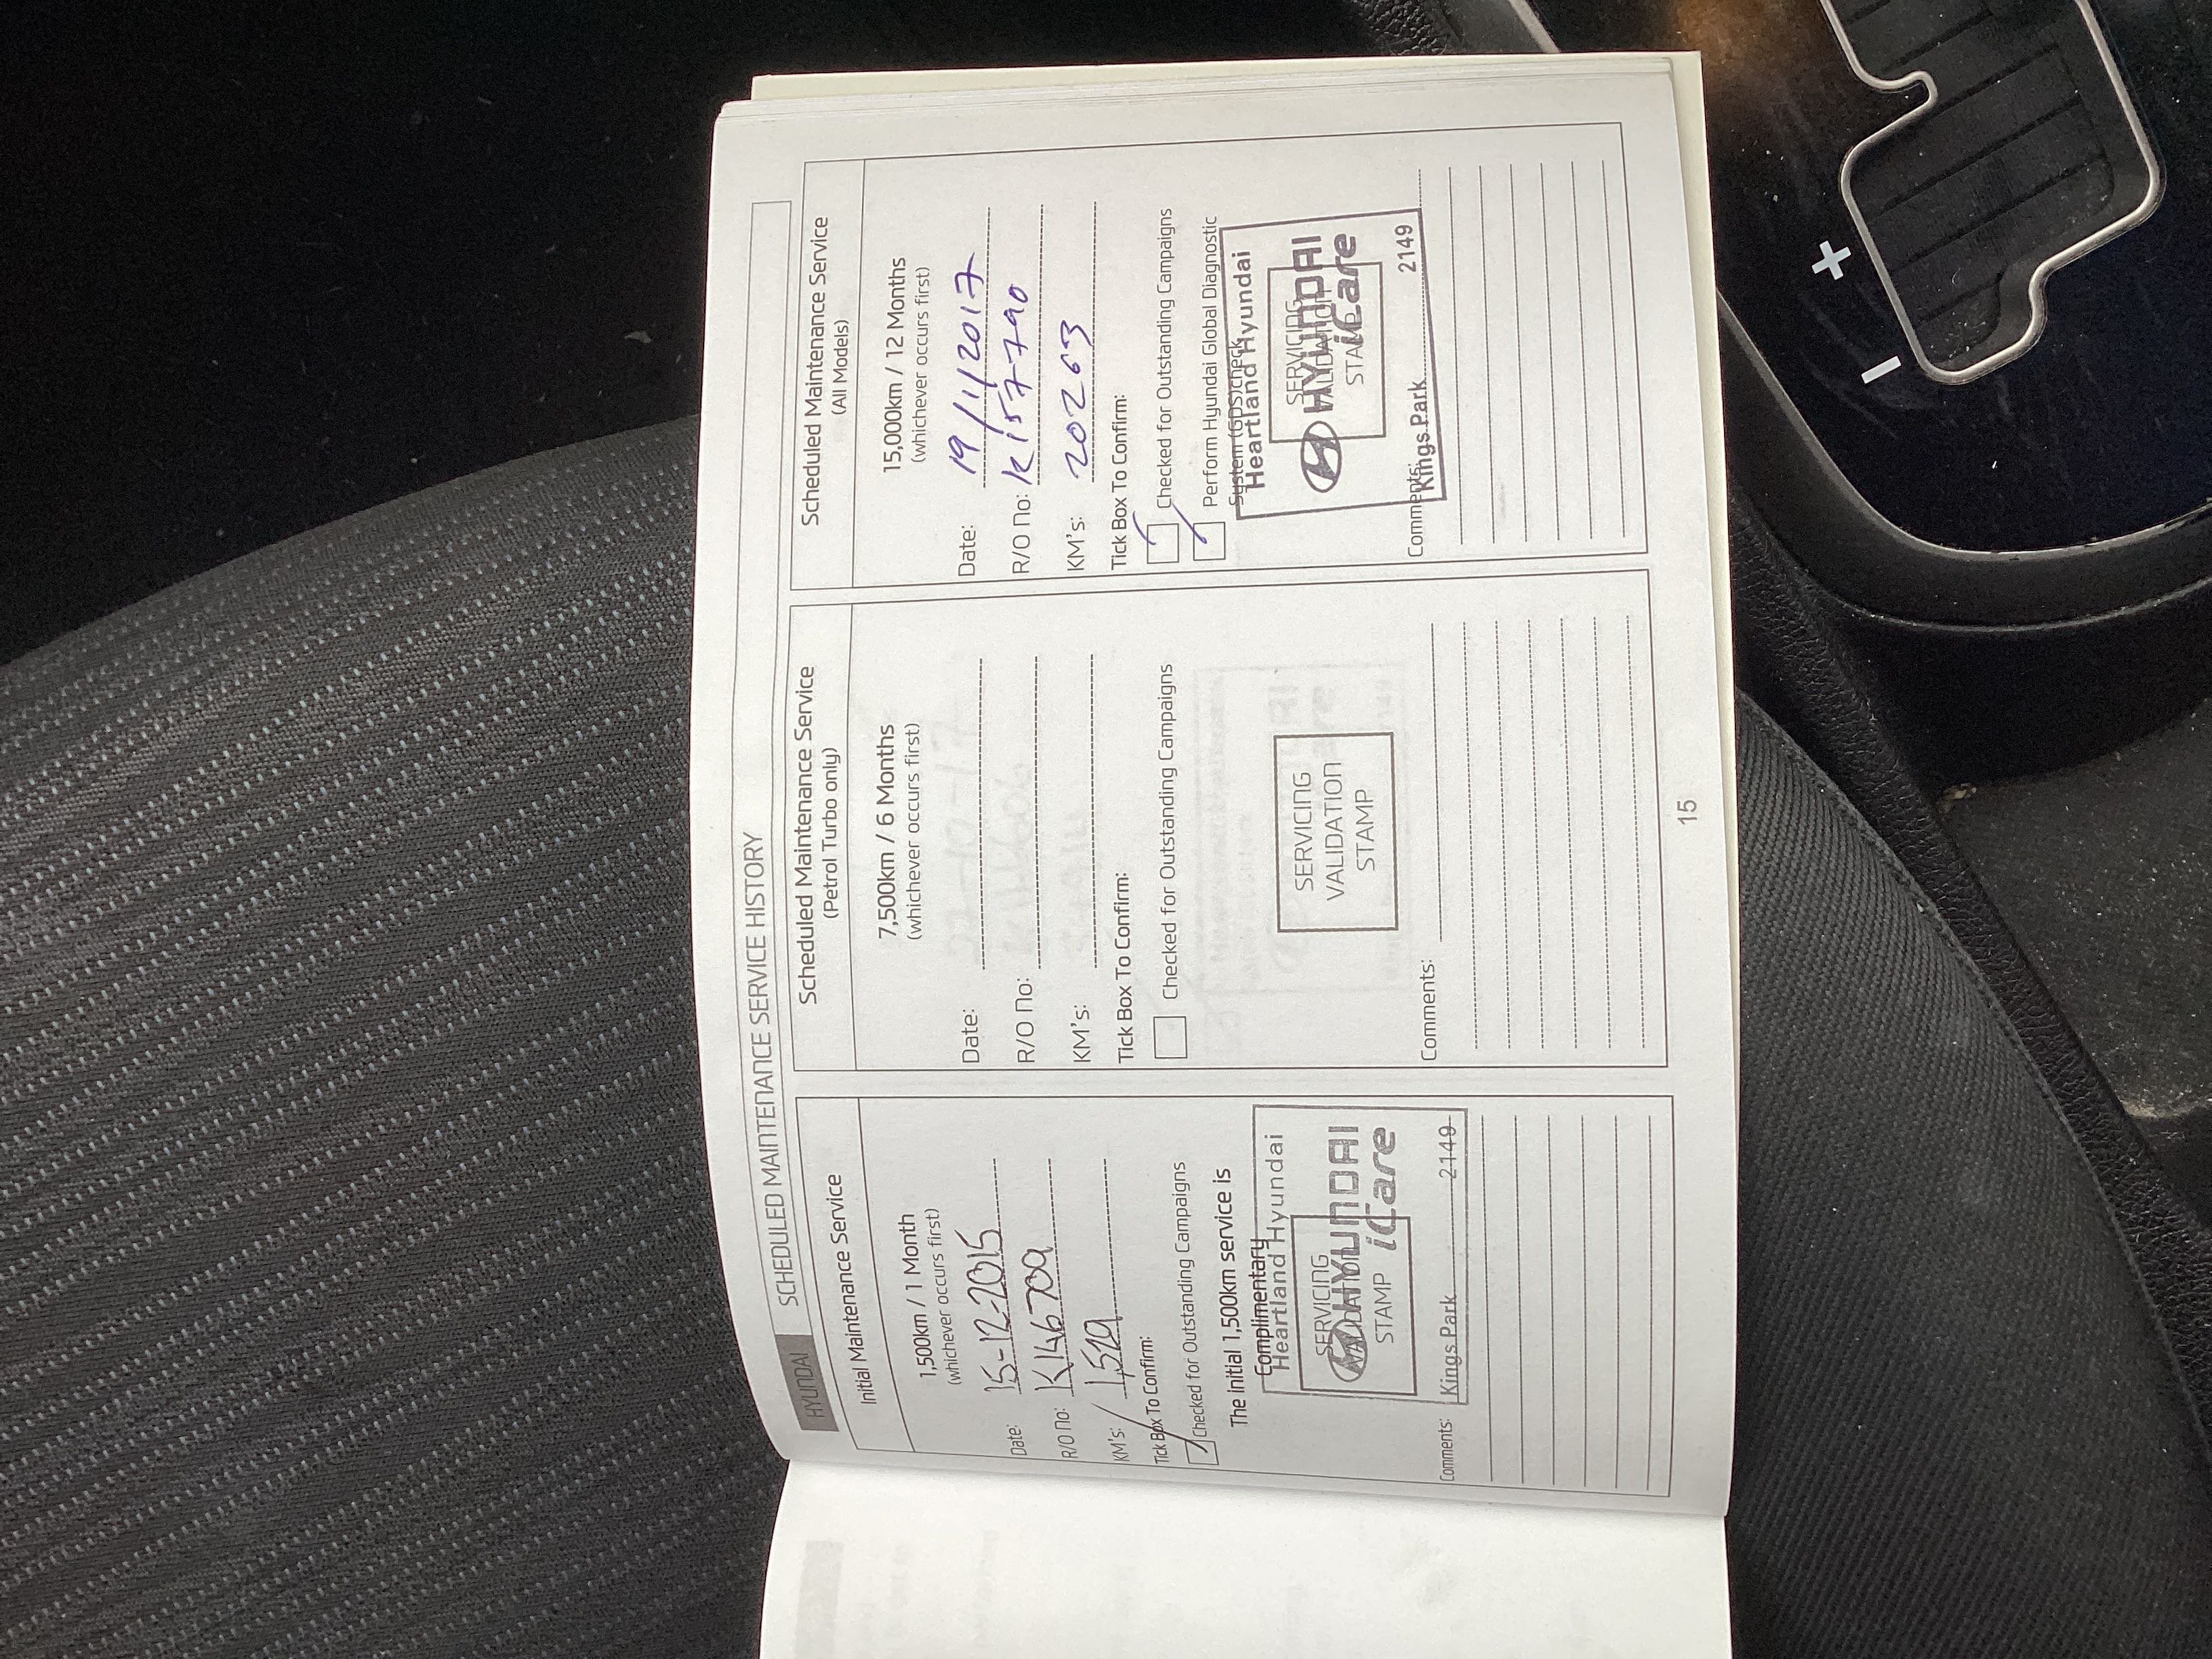 HYUNDAI SCHEDULED MAINTENANCE SERVICE HISTORY
Initial Maintenance Service
1,500km / 1 Month
(whichever occurs first)
Date: 15-12-2015
R/O No: K146709
KM's: 1,519
Tick Box To Confirm:
Checked for Outstanding Campaigns
The Initial 1,500km service is
Complimentary
Heartland Hyundai
SERVICING
VALIDATION
STAMP
HYUNDAI
iCare
Kings Park 2149
Comments:
Scheduled Maintenance Service
(Petrol Turbo only)
7,500km / 6 Months
(whichever occurs first)
Date:
R/O No:
KM's:
Tick Box To Confirm:
Checked for Outstanding Campaigns
SERVICING
VALIDATION
STAMP
Comments:
Scheduled Maintenance Service
(All Models)
15,000km / 12 Months
(whichever occurs first)
Date: 19/1/2017
R/O No: K157790
KM's: 20263
Tick Box To Confirm:
Checked for Outstanding Campaigns
Perform Hyundai Global Diagnostic
System (GDS) check
Heartland Hyundai
SERVICING
VALIDATION
STAMP
HYUNDAI
iCare
Kings Park 2149
Comments:
15
+
−